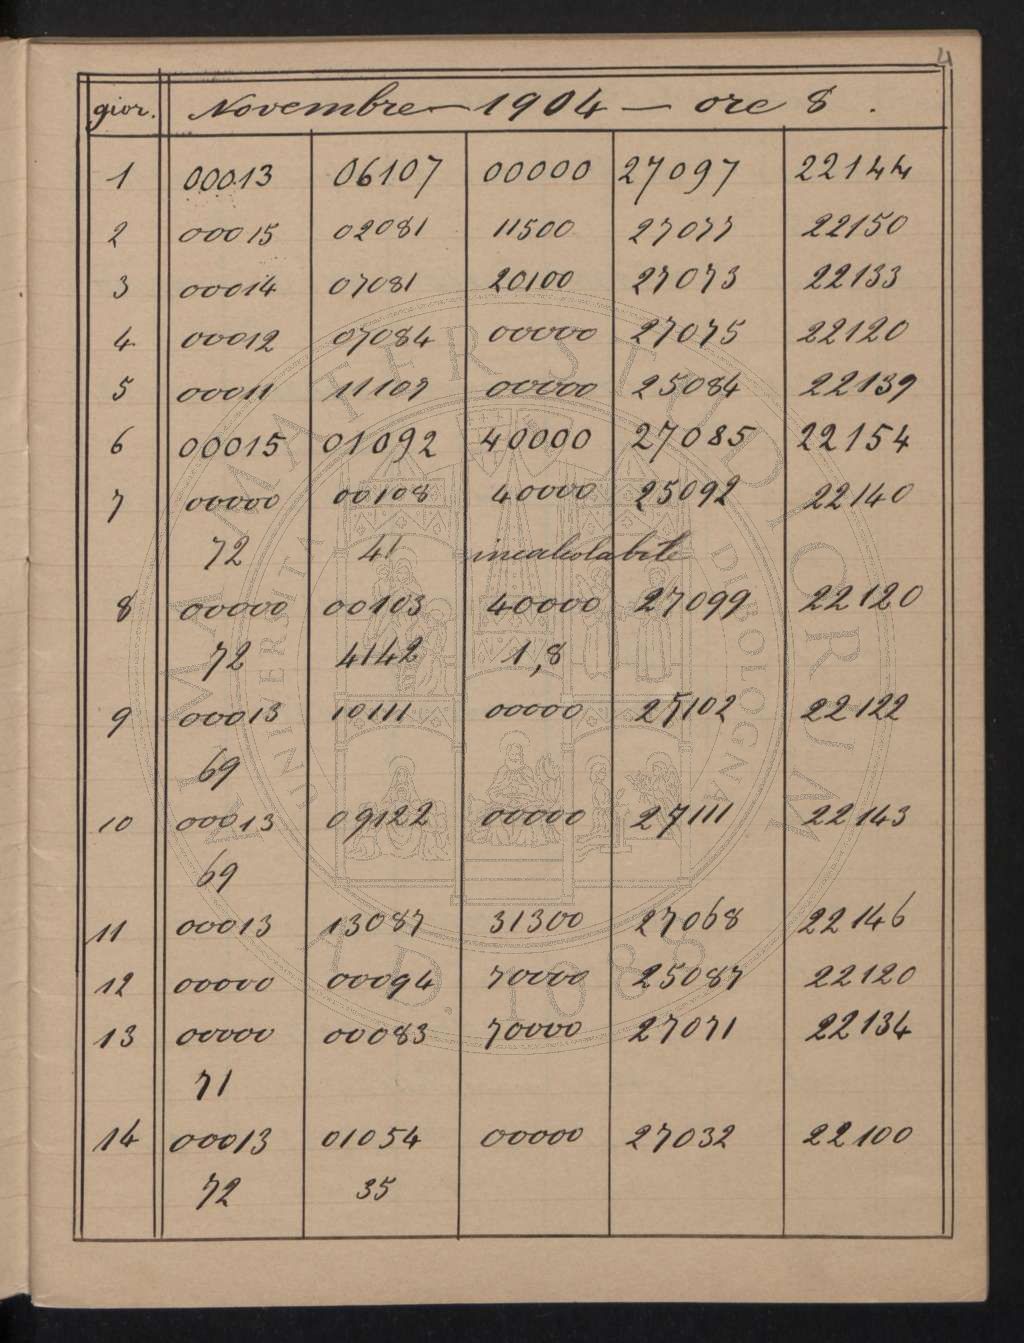 4
gior. Novembre — 1904 — ore 8.
1 00013 06107 00000 27097 22144
2 00015 02081 11500 27077 22150
3 00014 07081 20100 27073 22133
4 00012 07084 00000 27075 22120
5 00011 11107 00000 25084 22139
6 00015 01092 40000 27085 22154
7 00000 00108 40000 25092 22140
72 41 incalcolabile
8 00000 00103 40000 27099 22120
72 4142 1,8
9 00013 10111 00000 25102 22122
69
10 00013 09122 00000 27111 22143
69
11 00013 13087 31300 27068 22146
12 00000 00094 70000 25087 22120
13 00000 00083 70000 27071 22134
71
14 00013 01054 00000 27032 22100
72 35
ALMA MATER STUDIORUM
UNIVERSITÀ DI BOLOGNA
A.D. 1088